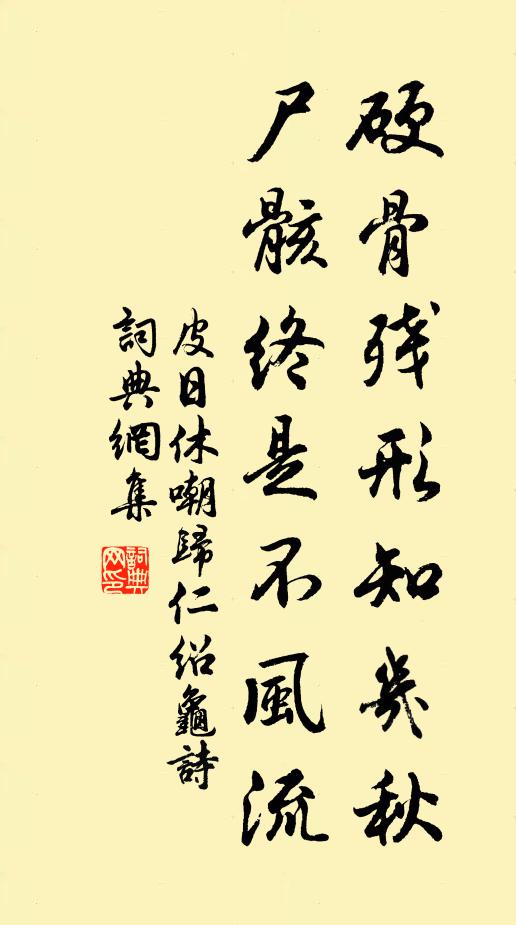 硬骨残形知幾秋
尸骸終是不風流
皮日休嘲歸仁紹龜詩
詞典網集
詞典网印